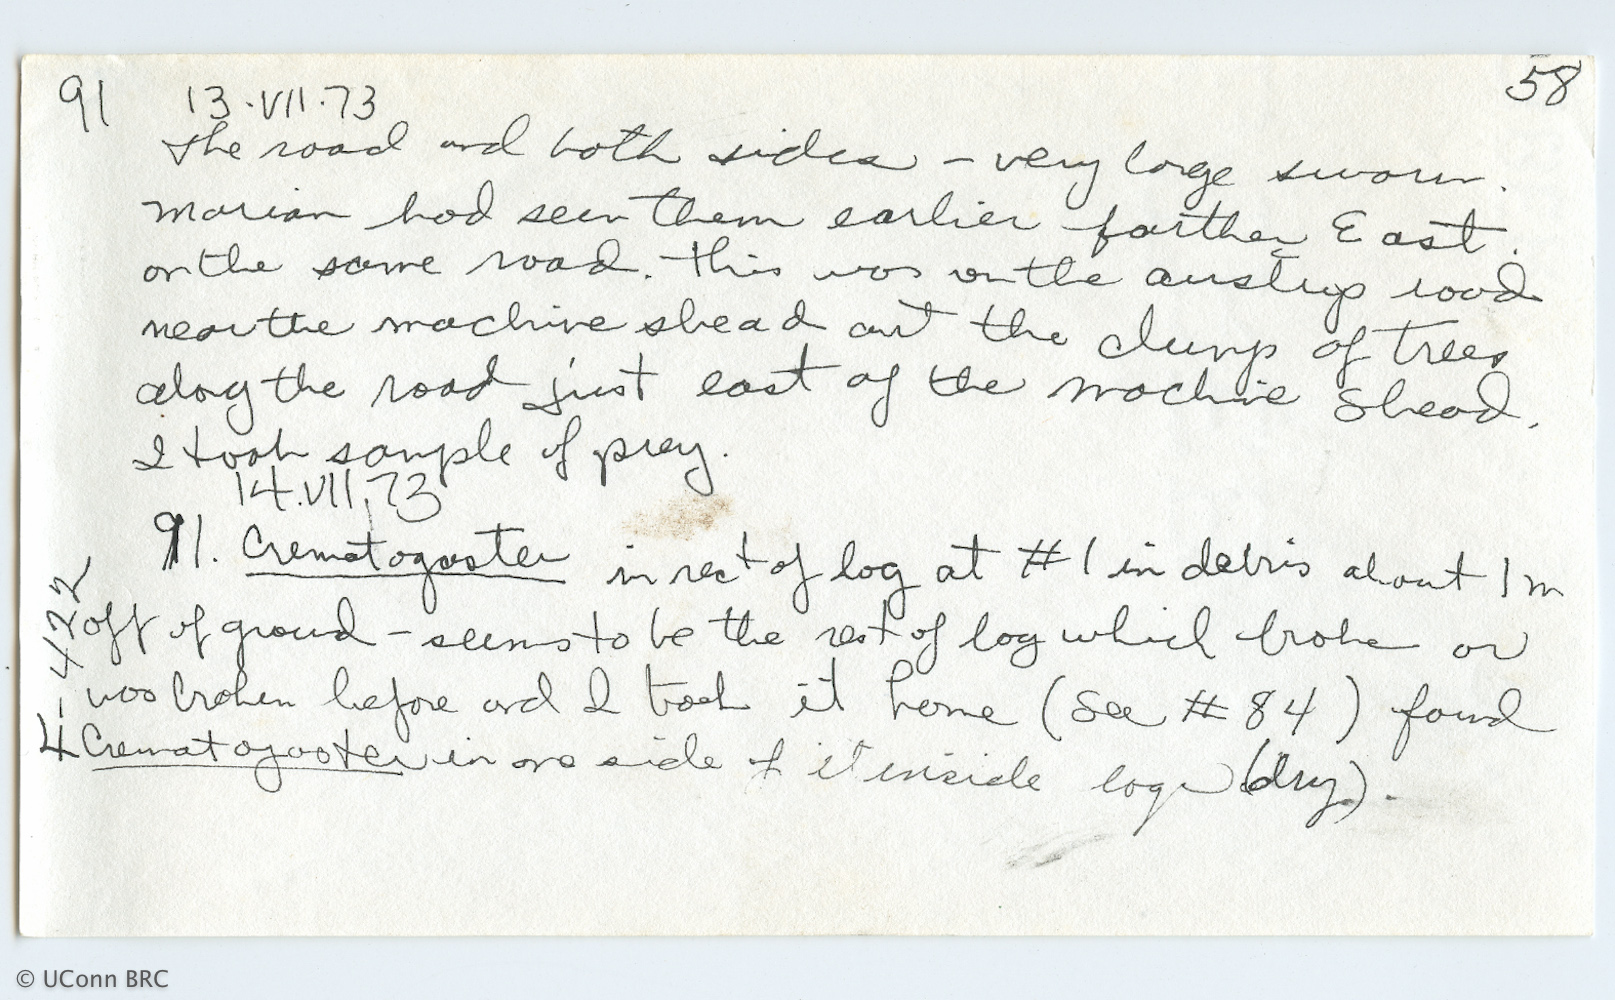 91 13.VII.73 58
the road and both sides – very large swarm.
Marian had seen them earlier farther East.
on the same road. This was on the airstrip road
near the machine shead at the clump of trees
along the road just east of the machine shead.
I took sample of prey.
14.VII.73
91. Crematogaster in rest of log at #1 in debris about 1 m
off of ground – seems to be the rest of log which broke or
was broken before and I took it home (See #84) found
Crematogaster in one side of it inside log (dry).
4-422
© UConn BRC